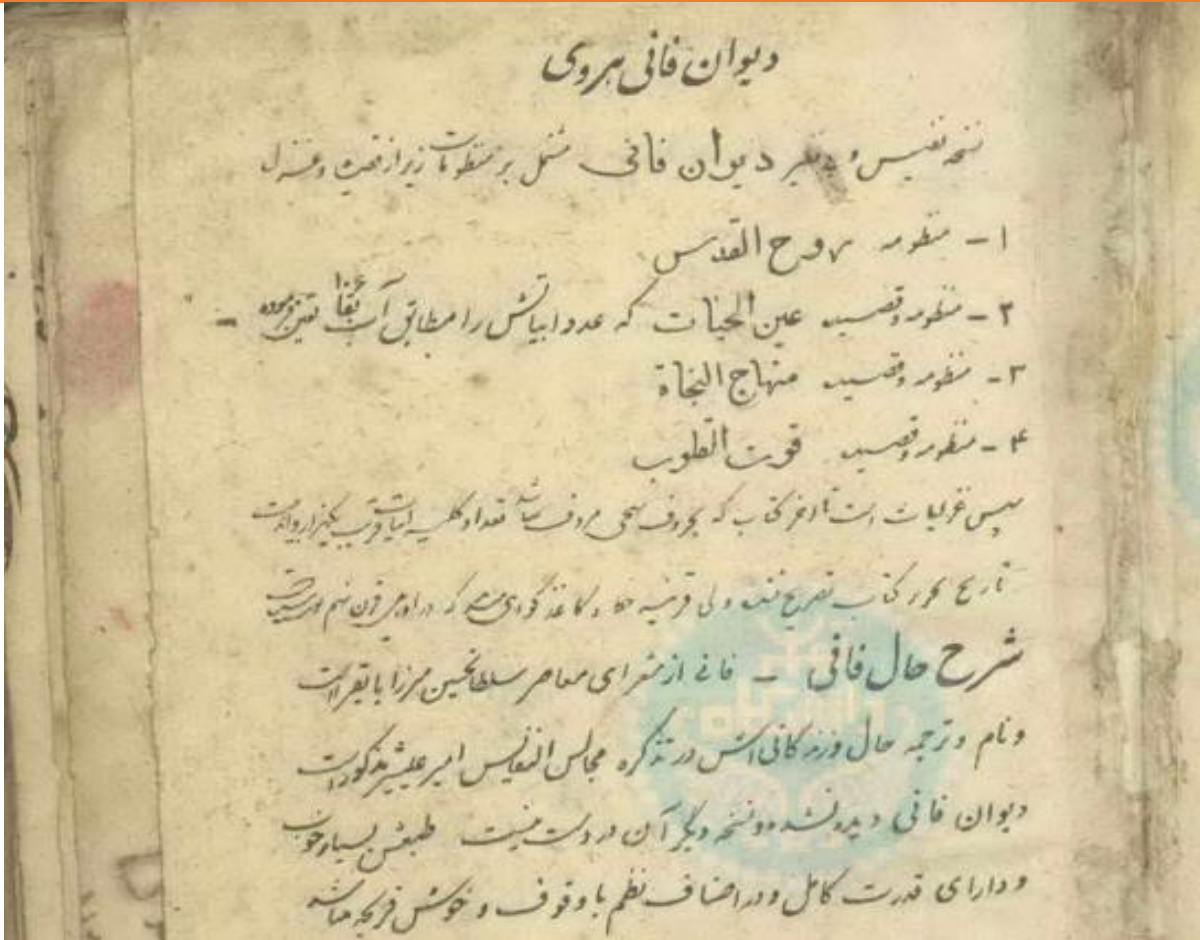 دیوان فانی هروی
نسخه نفیس و بی نظیر دیوان فانی مشتمل بر منظومات زیر از قصیده و غزل
۱ - منظومه روح القدس
۲ - منظومه و قصیده عین الحیات که عدد ابیاتش را مطابق آب بقا ۱۰۶ تعیین فرموده -
۳ - منظومه و قصیده منهاج النجاة
۴ - منظومه و قصیده قوت القلوب
سپس غزلیات است تا آخر کتاب که بحروف تهجی مردف میباشد تعداد کلیه ابیات قریب یکهزار و
تاریخ تحریر کتاب تصریح نشده ولی قرینه خط و کاغذ گواهی میدهد که در اواخر قرن نهم
شرح حال فانی - فانی از شعرای معاصر سلطانحسین میرزا بایقرا است
و نام و ترجمه حال و زندگانی اش در تذکره مجالس النفایس امیر علیشیر مذکور است
دیوان فانی دیده نشده و نسخه دیگر آن در دست نیست طبعش بسیار خوب
و دارای قدرت کامل و در اصناف نظم با وقوف و خوش قریحه میباشد